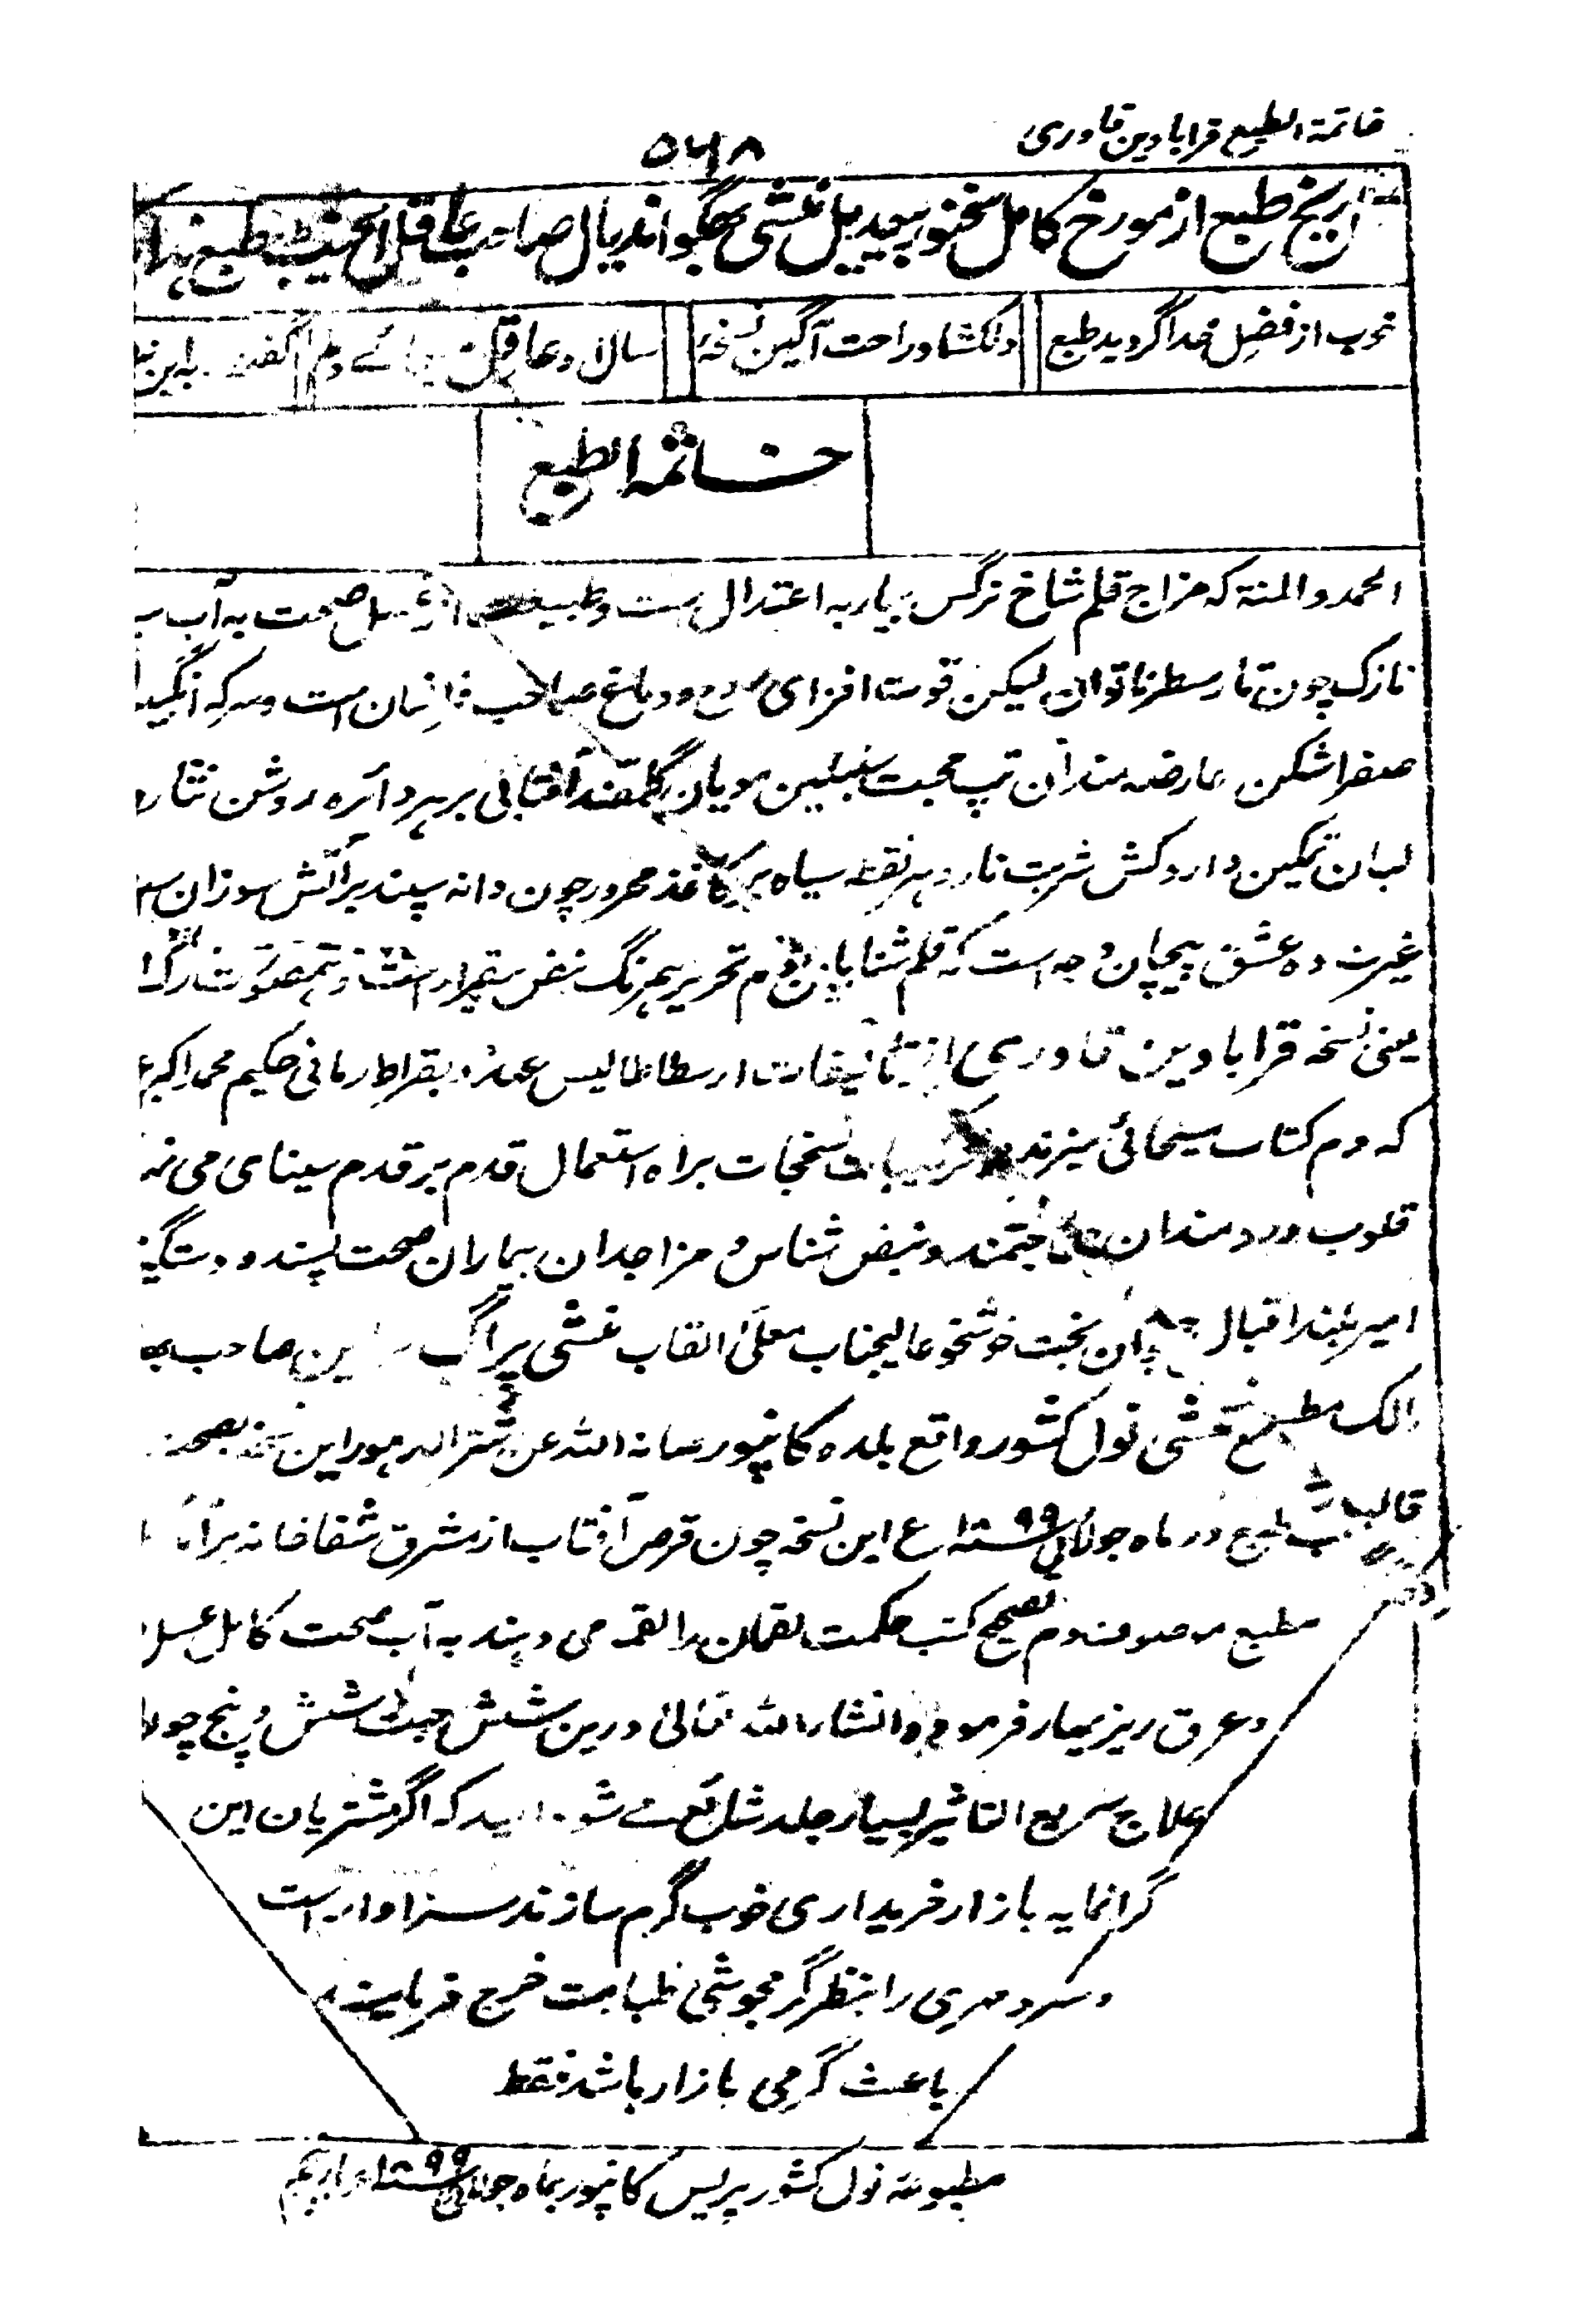 خاتمة الطبع قرابادین قادری
۵۶۸
تاریخ طبع از مورخ کامل سخنور بیعدیل منشی بھگوانديال صاحب عاقل ایجنٹ مطبع ہذا
خوب از فضل خدا گردید طبع دلکشا و راحت آگین نسخهٔ سال او عاقل دلم گفت این
خاتمة الطبع
الحمد والمنة که مزاج قلم شاخ نرگس بیمار به اعتدال ست و صحت به آب
نازک چون تار سطر ناتوان لیکن قوت افزای روح و دماغ صاحب است و سرکه
صفرا شکن عارضه مندان تپ محبت سنبلین مویان گلقند آفتابی بر هر دائره روشن نثار
لبان نمکین دارو کش شربت نار و هر نقطه سیاه بر کاغذ محرور چون دانه سپند بر آتش سوزان
غیرت ده عشق پیچان و چه است که قلم تحریر همرنگ نبض
یعنی نسخه قرابادین قادری از تالیفات ارسطاطالیس عهد و بقراط زمانی حکیم محمد اکبر
که دم کتاب مسیحائی میزند و ترکیبات نسخجات براه استعمال قدم بر قدم سینای می نه
قلوب دردمندان و نبض شناس و مزاجدان بیماران صحت پسند و دستگیر
امیر بلند اقبال جوان بخت خوشخو عالیجناب معلی القاب منشی پراگ نراین صاحب
مالک مطبع منشی نول کشور واقع بلده کانپور صانه الله عن شر الدهور این نسخه بصحت
قالب طبع در ماه جولائی ۱۸۹۹ ع این نسخه چون قرص آفتاب از مشرق شفاخانه
مطبع موصوف دم تصحیح کتب حکمت لقمان را لقمه می دهند به آب صحت کامل غسل
و عرق ریز بسیار فرموده انشاء الله تعالی درین شش جهت شش و پنج
علاج سریع التاثیر بسیار جلد شائع مے شود امید که اگر مشتریان این
گرانمایه بازار خریداری خوب گرم سازند سزاوار است
و سرد مهری را بنظر گرمجوشی طبابت خرج فرمایند
باعث گرمی بازار باشد فقط
مطبوعه نول کشور پریس کانپور بماه جولائی ۱۸۹۹ع